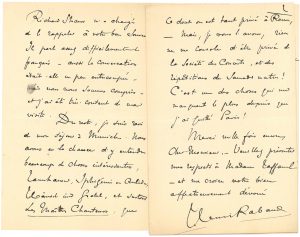 Richard Strauss m'a chargé
de l' rappeler à votre bon souvenir
Il parle assez difficilement le
français — aussi la conversation
était-elle un peu entrecoupée —
mais nous nous sommes compris —
et j'ai été très content de ma
visite. Du reste, je suis ravi
de mon séjour à Munich. Nous
avons eu la chance d'y entendre
beaucoup de choses intéressantes,
Tannhäuser, Iphigénie en Aulide,
et surtout
les Maîtres Chanteurs, que
Ce dont on est tant privé à Rome,
— Mais, je vous l'avoue, rien
ne me console d'être privé de
la Société des Concerts, et des
répétitions du Samedi matin!
C'est une des choses qui me
manquent le plus depuis que
j'ai quitté Paris!
Merci mille fois encore,
Cher Monsieur. Veuillez présenter
mes respects à Madame Taffanel
et me croire votre bien
affectueusement dévoué
Henri Rabaud